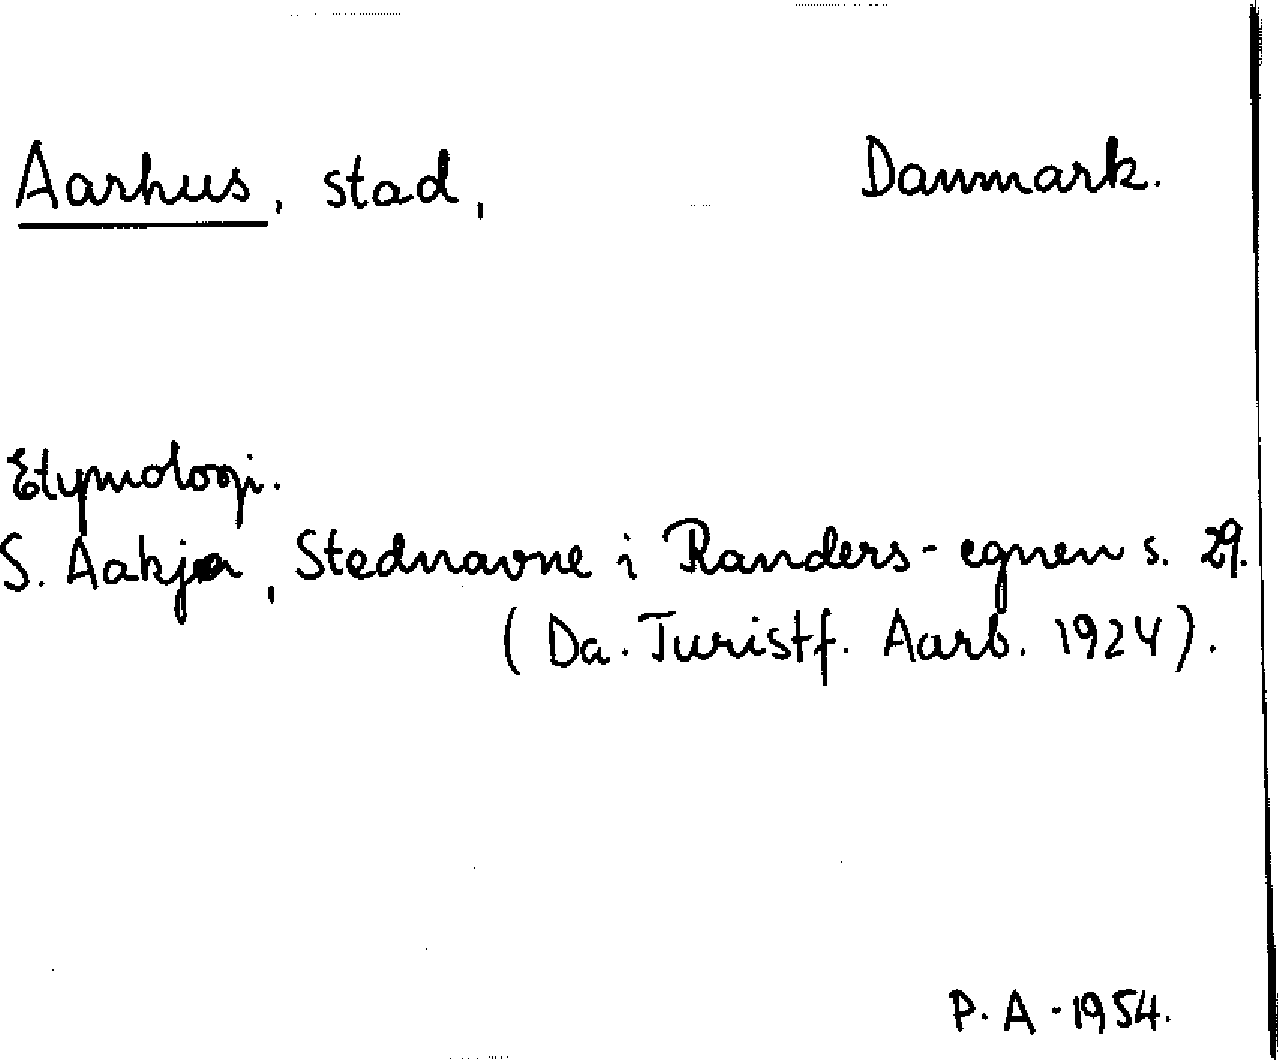 Aarhus, stad, Danmark.
Etymologi.
S. Aakjær, Stednavne i Randers-egnen s. 29.
(Da. Turistf. Aarb. 1924).
P. A. 1954.